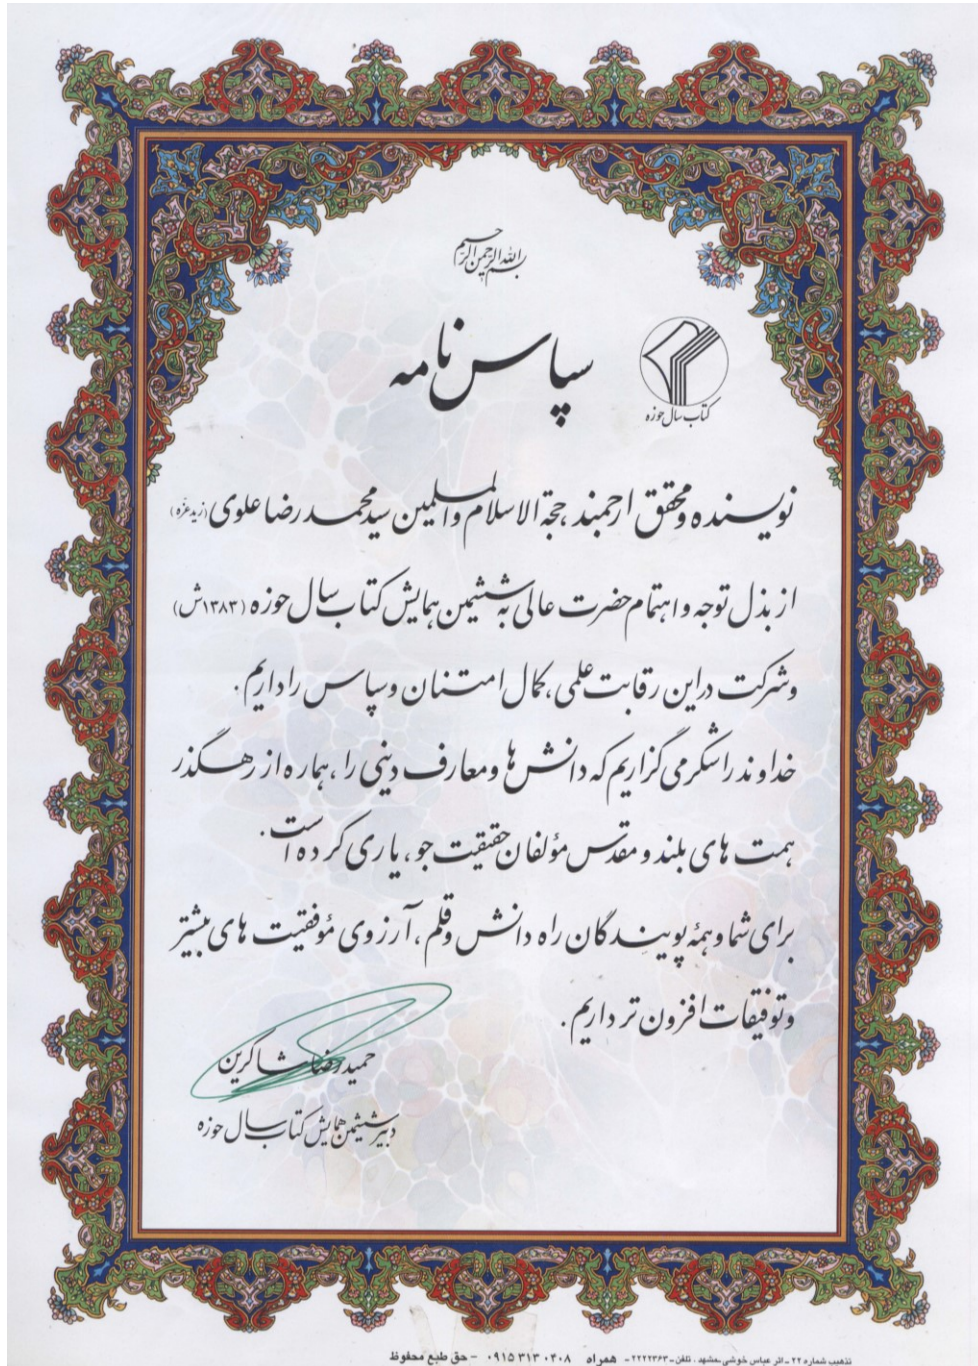 بسم الله الرحمن الرحیم
سپاس نامه
کتاب سال حوزه
نویسنده و محقق ارجمند، حجة الاسلام والمسلمین سید محمد رضا علوی (زید عزه)
از بذل توجه و اهتمام حضرت عالی به ششمین همایش کتاب سال حوزه (۱۳۸۳ش)
و شرکت در این رقابت علمی، کمال امتنان و سپاس را داریم.
خداوند را شکر می گزاریم که دانش ها و معارف دینی را، هماره از رهگذر
همت های بلند و مقدس مؤلفان حقیقت جو، یاری کرده است.
برای شما و همهٔ پویندگان راه دانش و قلم، آرزوی مؤفقیت های بیشتر
و توفیقات افزون تر داریم.
حمید رضا شاکرین
دبیر ششمین همایش کتاب سال حوزه
تذهیب شماره ۲۲ - اثر عباس خوشی - مشهد . تلفن - ۲۲۲۲۳۶۳ - همراه ۰۹۱۵ ۳۱۳ ۰۴۰۸ - حق طبع محفوظ